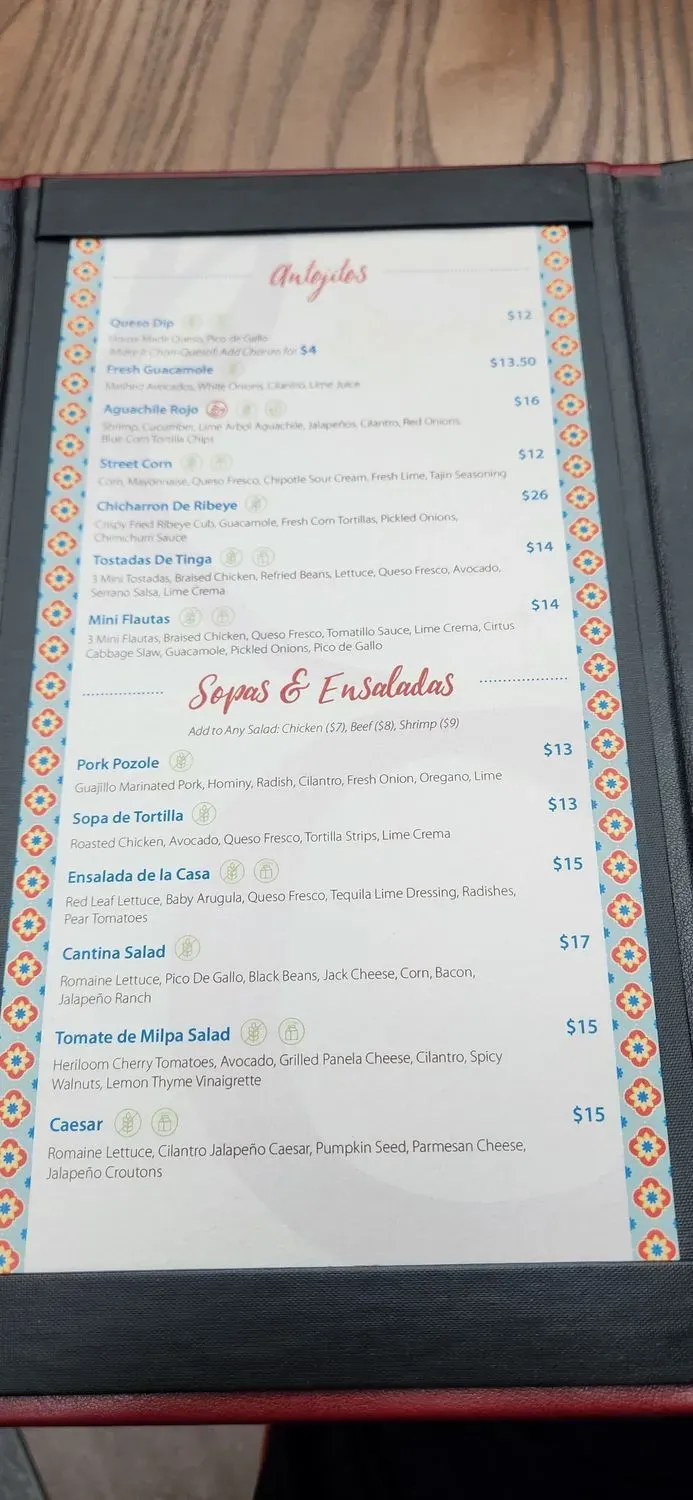 Antojitos
Queso Dip $12
House Made Queso, Pico de Gallo
Make it Chori-Queso!! Add Chorizo for $4
Fresh Guacamole $13.50
Mashed Avocados, White Onions, Cilantro, Lime Juice
Aguachile Rojo $16
Shrimp, Cucumber, Lime Arbol Aguachile, Jalapeños, Cilantro, Red Onions,
Blue Corn Tortilla Chips
Street Corn $12
Corn, Mayonnaise, Queso Fresco, Chipotle Sour Cream, Fresh Lime, Tajin Seasoning
Chicharron De Ribeye $26
Crispy Fried Ribeye Cub, Guacamole, Fresh Corn Tortillas, Pickled Onions,
Chimichurri Sauce
Tostadas De Tinga $14
3 Mini Tostadas, Braised Chicken, Refried Beans, Lettuce, Queso Fresco, Avocado,
Serrano Salsa, Lime Crema
Mini Flautas $14
3 Mini Flautas, Braised Chicken, Queso Fresco, Tomatillo Sauce, Lime Crema, Cirtus
Cabbage Slaw, Guacamole, Pickled Onions, Pico de Gallo
Sopas & Ensaladas
Add to Any Salad: Chicken ($7), Beef ($8), Shrimp ($9)
Pork Pozole $13
Guajillo Marinated Pork, Hominy, Radish, Cilantro, Fresh Onion, Oregano, Lime
Sopa de Tortilla $13
Roasted Chicken, Avocado, Queso Fresco, Tortilla Strips, Lime Crema
Ensalada de la Casa $15
Red Leaf Lettuce, Baby Arugula, Queso Fresco, Tequila Lime Dressing, Radishes,
Pear Tomatoes
Cantina Salad $17
Romaine Lettuce, Pico De Gallo, Black Beans, Jack Cheese, Corn, Bacon,
Jalapeño Ranch
Tomate de Milpa Salad $15
Heriloom Cherry Tomatoes, Avocado, Grilled Panela Cheese, Cilantro, Spicy
Walnuts, Lemon Thyme Vinaigrette
Caesar $15
Romaine Lettuce, Cilantro Jalapeño Caesar, Pumpkin Seed, Parmesan Cheese,
Jalapeño Croutons